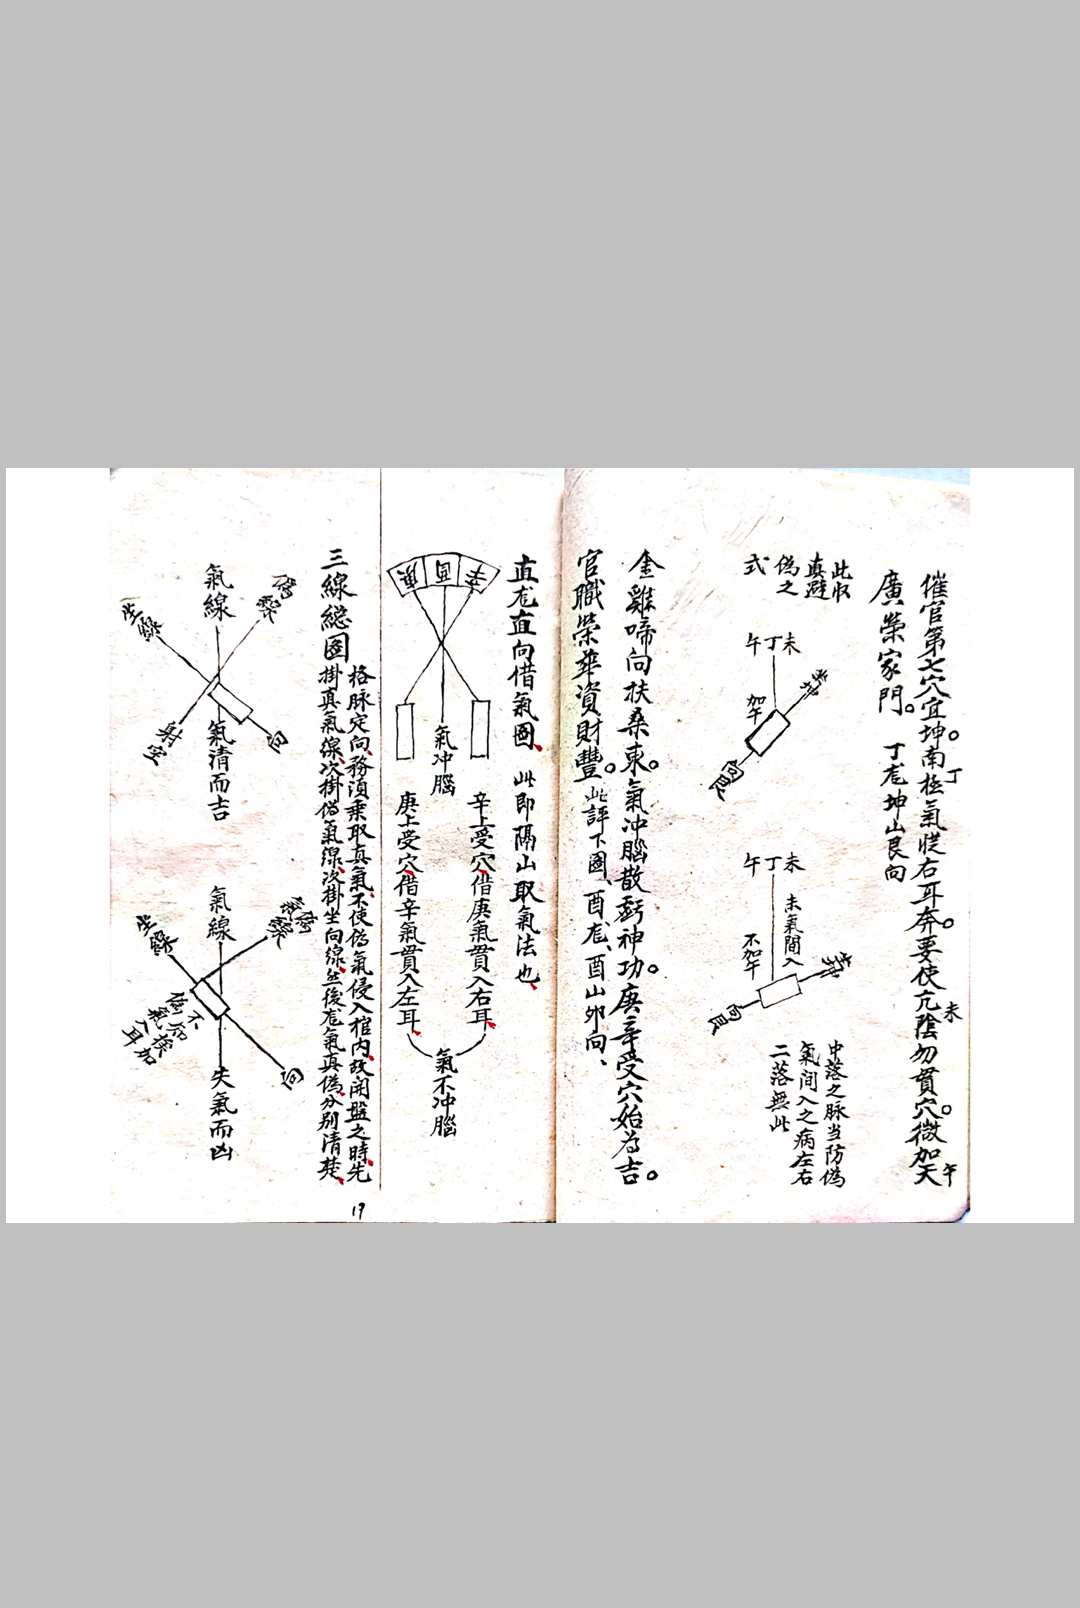 催官第七穴宜坤。南極氣從右耳奔。要使亢陰勿貫穴。微加天
丁
未
午
廣榮家門。
丁龙坤山艮向
此收
真避
偽之
式
午丁未
加午
坐坤
向艮
午丁未
未氣間入
不加午
坐坤
向艮
中落之脉当防偽
氣間入之病左右
二落無此
金雞啼向扶桑東。氣冲腦散虧神功。庚辛受穴始為吉。
官職榮華資財豐。此評下圖、酉龙、酉山卯向、
直龙直向借氣圖、此即隔山取氣法也、
辛酉庚
氣冲腦
辛上受穴、借庚氣貫入右耳、
庚上受穴、借辛氣貫入左耳、
氣不冲腦
三線總图
格脉定向、務須乗取真氣、不使偽氣侵入棺内、故開盤之時、先
掛真氣線、次掛偽氣線、次掛坐向線、然後龙氣真偽、分别清楚、
偽線
氣線
坐線
向
射空
氣清而吉
偽氣線
氣線
坐線
向
失氣而凶
17